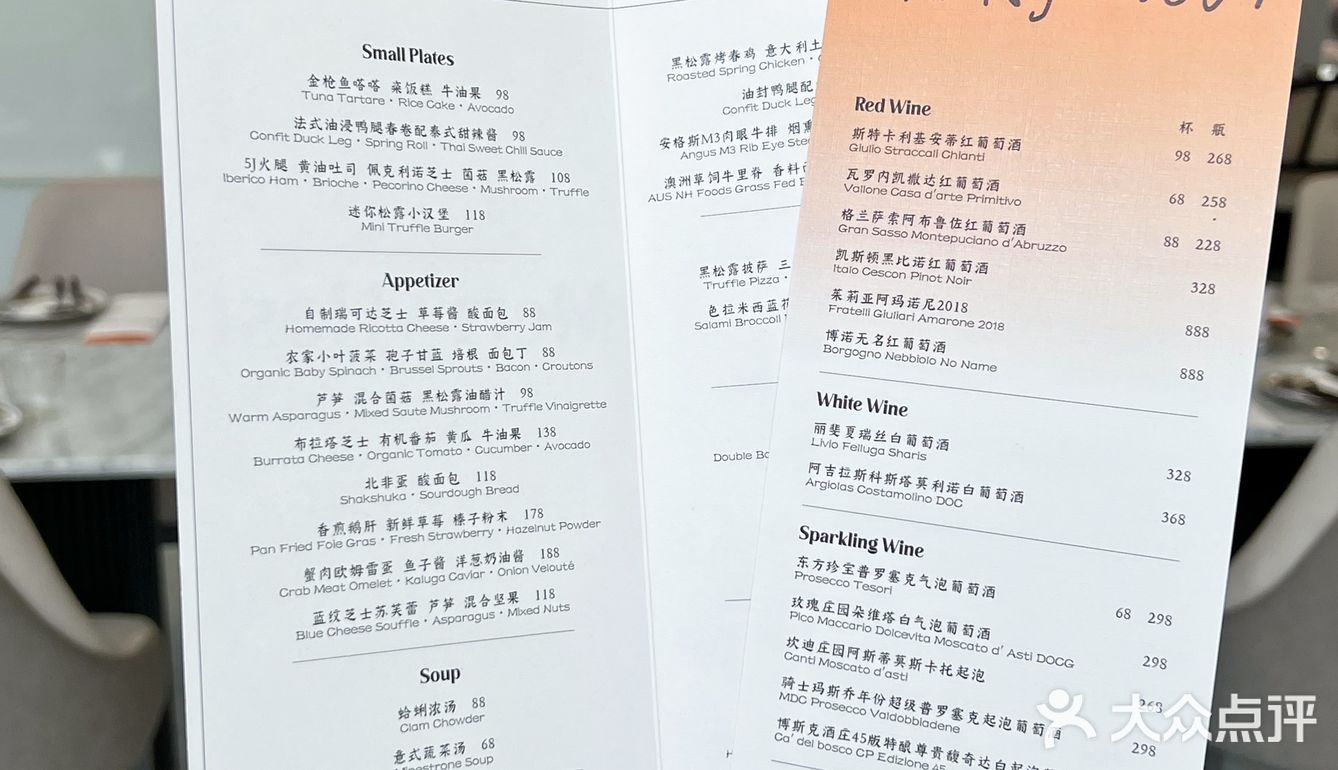 Small Plates
金枪鱼嗒嗒 粢饭糕 牛油果 98
Tuna Tartare · Rice Cake · Avocado
法式油浸鸭腿春卷配泰式甜辣酱 98
Confit Duck Leg · Spring Roll · Thai Sweet Chili Sauce
5J火腿 黄油吐司 佩克利诺芝士 菌菇 黑松露 108
Iberico Ham · Brioche · Pecorino Cheese · Mushroom · Truffle
迷你松露小汉堡 118
Mini Truffle Burger
Appetizer
自制瑞可达芝士 草莓酱 酸面包 88
Homemade Ricotta Cheese · Strawberry Jam
农家小叶菠菜 孢子甘蓝 培根 面包丁 88
Organic Baby Spinach · Brussel Sprouts · Bacon · Croutons
芦笋 混合菌菇 黑松露油醋汁 98
Warm Asparagus · Mixed Saute Mushroom · Truffle Vinaigrette
布拉塔芝士 有机番茄 黄瓜 牛油果 138
Burrata Cheese · Organic Tomato · Cucumber · Avocado
北非蛋 酸面包 118
Shakshuka · Sourdough Bread
香煎鹅肝 新鲜草莓 榛子粉末 178
Pan Fried Foie Gras · Fresh Strawberry · Hazelnut Powder
蟹肉欧姆雷蛋 鱼子酱 洋葱奶油酱 188
Crab Meat Omelet · Kaluga Caviar · Onion Velouté
蓝纹芝士苏芙蕾 芦笋 混合坚果 118
Blue Cheese Souffle · Asparagus · Mixed Nuts
Soup
蛤蜊浓汤 88
Clam Chowder
意式蔬菜汤 68
Minestrone Soup
黑松露烤春鸡 意大利土
Roasted Spring Chicken ·
油封鸭腿配
Confit Duck Leg
安格斯M3肉眼牛排 烟熏
Angus M3 Rib Eye
澳洲草饲牛里脊 香料
AUS NH Foods Grass Fed
黑松露披萨 三
Truffle Pizza ·
色拉米西蓝花
Salami Broccoli
Double
Red Wine
杯 瓶
斯特卡利基安蒂红葡萄酒
Giulio Straccali Chianti
98 268
瓦罗内凯撒达红葡萄酒
Vallone Casa d'arte Primitivo
68 258
格兰萨索阿布鲁佐红葡萄酒
Gran Sasso Montepuciano d'Abruzzo
88 228
凯斯顿黑比诺红葡萄酒
Italo Cescon Pinot Noir
328
茱莉亚阿玛诺尼2018
Fratelli Giuliari Amarone 2018
888
博诺无名红葡萄酒
Borgogno Nebbiolo No Name
888
White Wine
丽斐夏瑞丝白葡萄酒
Livio Felluga Sharis
328
阿吉拉斯科斯塔莫利诺白葡萄酒
Argiolas Costamolino DOC
368
Sparkling Wine
东方珍宝普罗塞克气泡葡萄酒
Prosecco Tesori
68 298
玫瑰庄园朵维塔白气泡葡萄酒
Pico Maccario Dolcevita Moscato d' Asti DOCG
298
坎迪庄园阿斯蒂莫斯卡托起泡
Canti Moscato d'asti
268
骑士玛斯乔年份超级普罗塞克起泡葡萄酒
MDC Prosecco Valdobbladene
298
博斯克酒庄45版特酿尊贵馥奇达白起泡
Ca' del bosco CP Edizione 45
大众点评